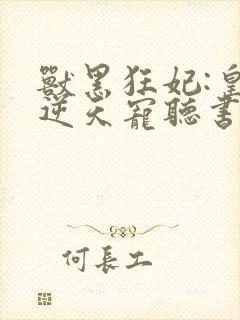 獸黑狂妃:皇
逆天寵聽書
何長工